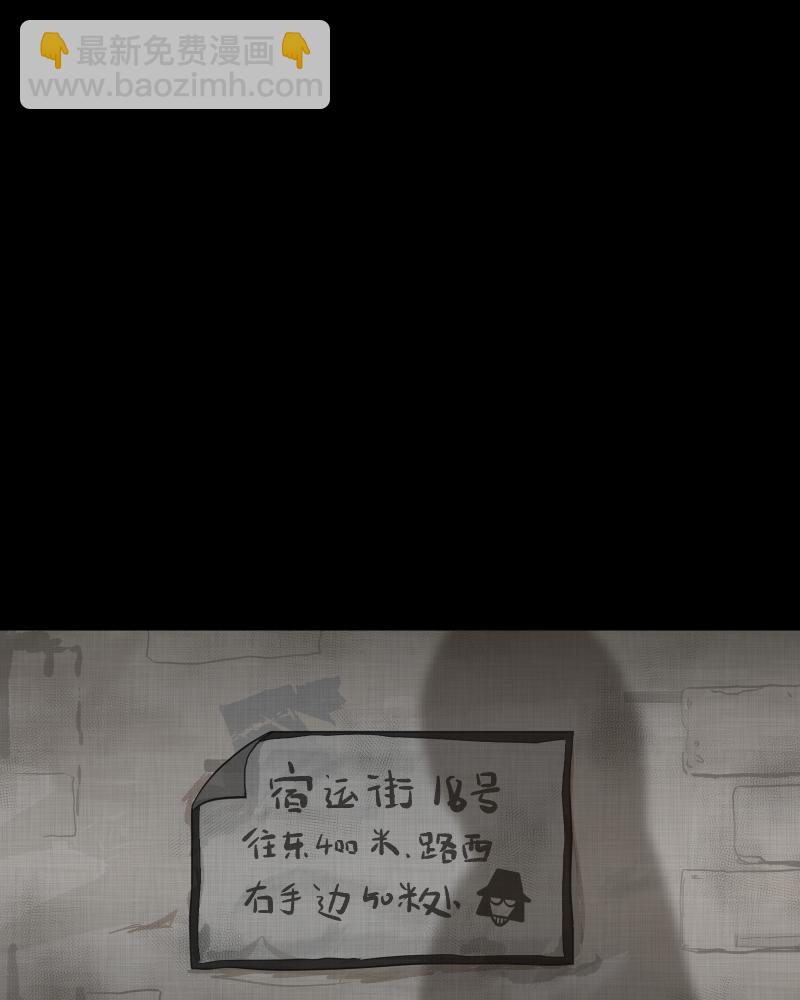 👇最新免费漫画👇
www.baozimh.com
宿运街 18号
往东400米.路西
右手边50米处.